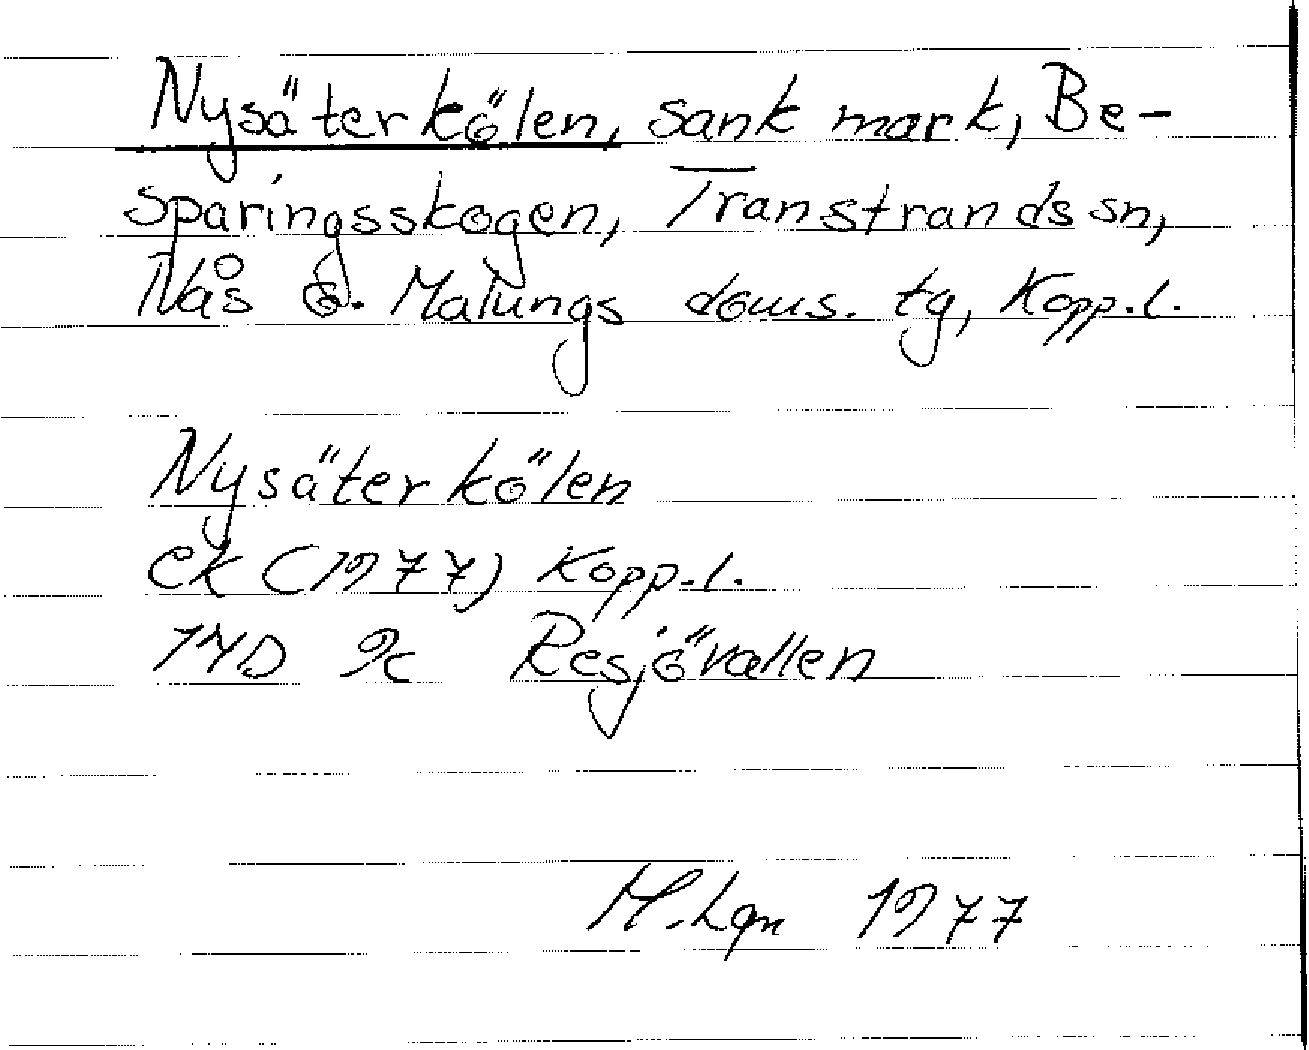 Nysäterkölen, sank mark, Be-
sparingsskogen, Transtrands sn,
Nås o. Malungs doms. tg, Kopp.l.
Nysäterkölen
ek (1977) Kopp.l.
14D 9c Resjövallen
M.Lgn 1977